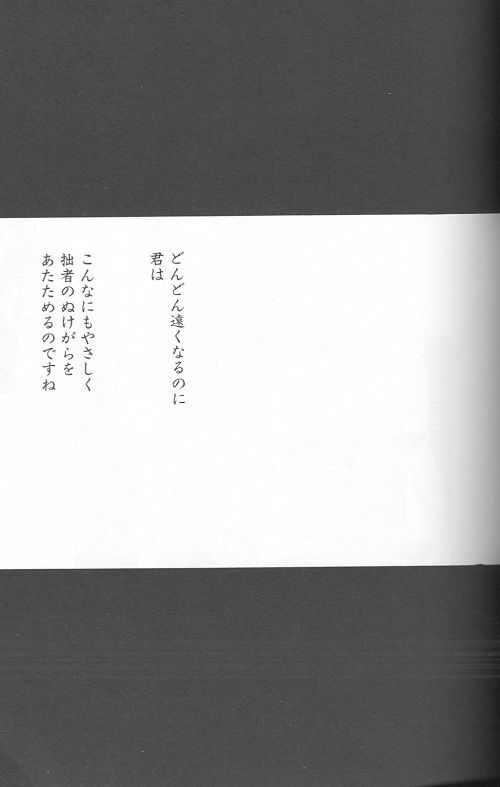 どんどん遠くなるのに
君は
こんなにもやさしく
拙者のぬけがらを
あたためるのですね